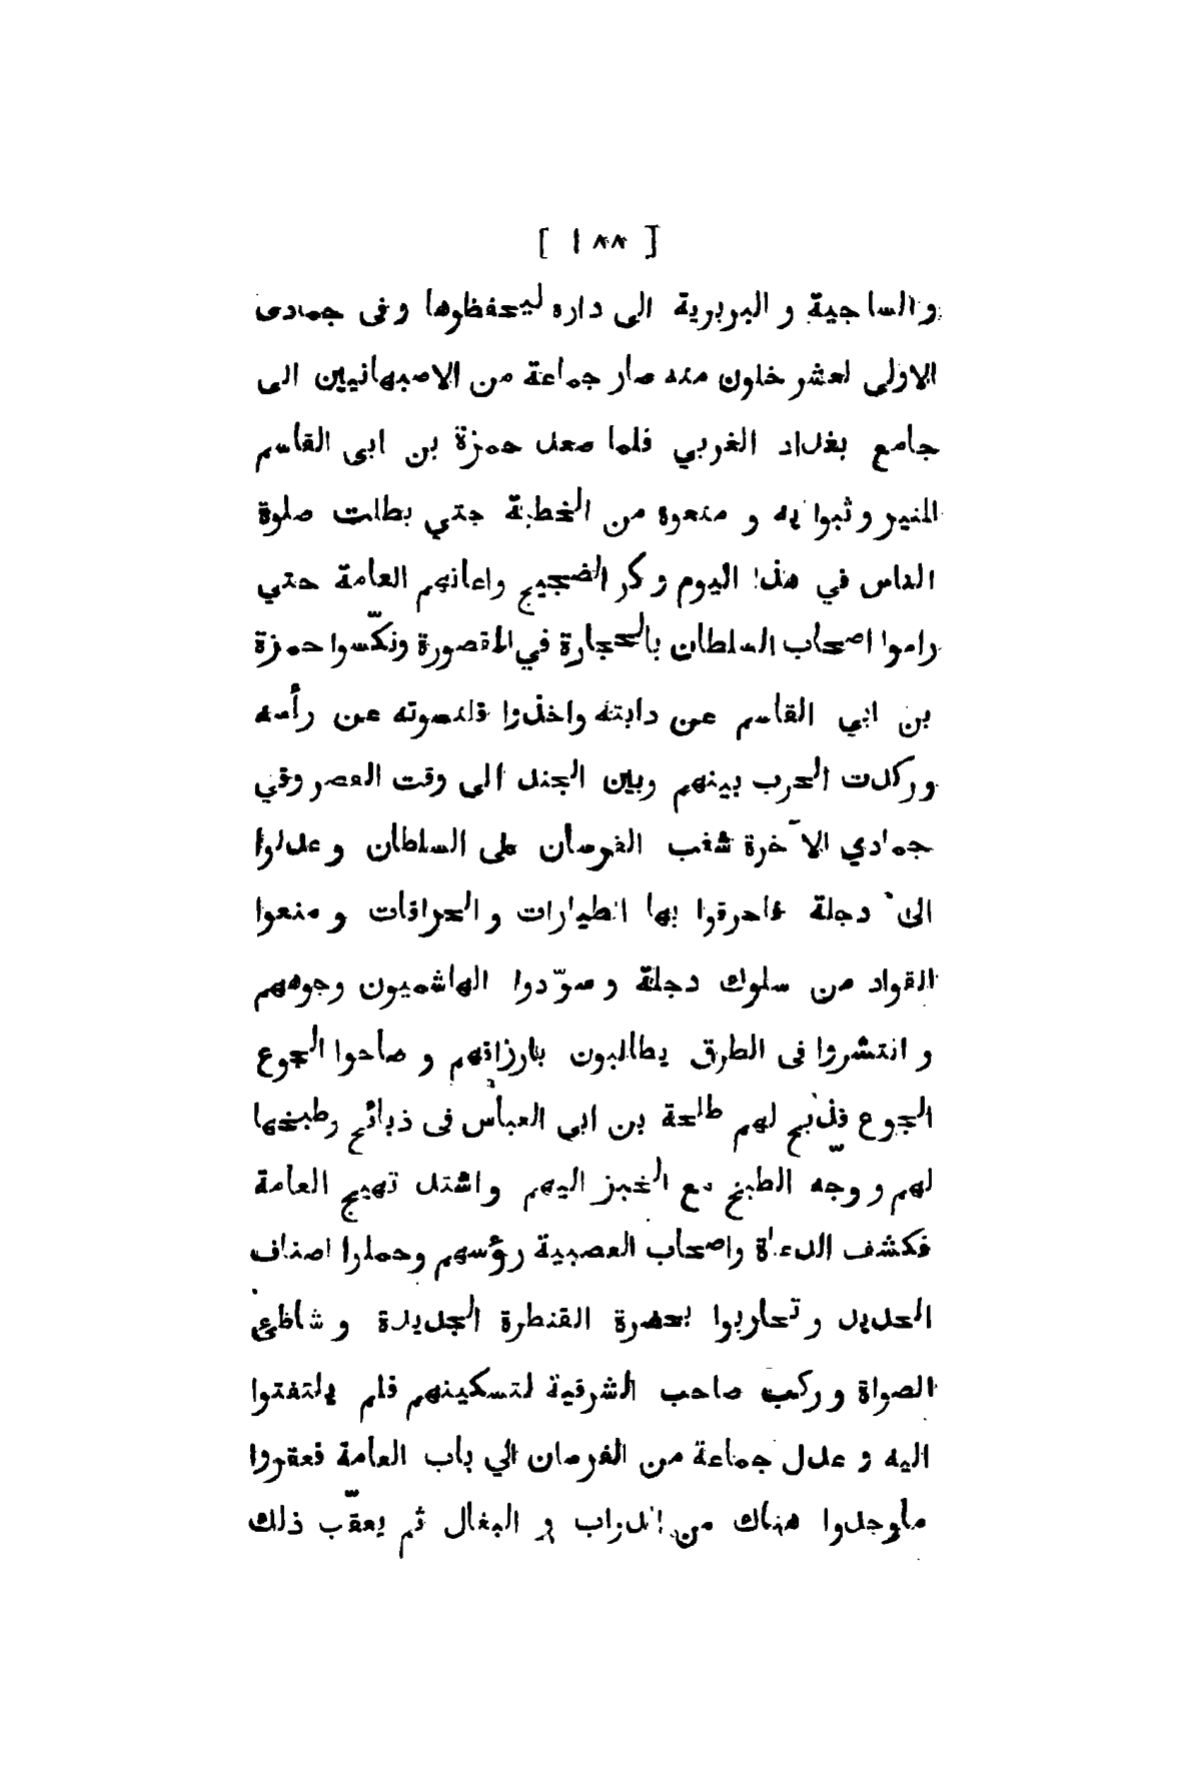 [ ١٨٨ ]
والساجية و البربرية الى داره ليحفظوها وفى جمادى
الاولى لعشر خلون منه صار جماعة من الاصبهانيين الى
جامع بغداد الغربي فلما صعد حمزة بن ابى القاسم
المنبر وثبوا به و منعوه من الخطبة حتي بطلت صلوة
الناس في هذا اليوم وكر الضجيج واعانهم العامة حتي
راموا اصحاب السلطان بالحجارة في المقصورة ونكّسوا حمزة
بن ابي القاسم عن دابته واخذوا قلنسوته عن رأسه
وركدت الحرب بينهم وبين الجند الى وقت العصر وفي
جمادي الآخرة شغب الفرسان على السلطان و عدلوا
الى دجلة فاحرقوا بها الطيارات و الحراقات و منعوا
القواد من سلوك دجلة و سوّدوا الهاشميون وجوههم
و انتشروا فى الطرق يطالبون بارزاقهم و صاحوا الجوع
الجوع فذبح لهم طلحة بن ابي العباس فى ذبائح وطبخها
لهم و وجّه الطبخ مع الخبز اليهم واشتد تهيج العامة
فكشف الدعاة واصحاب العصبية رؤسهم وحملوا اصناف
الحديد و تحاربوا بحضرة القنطرة الجديدة و شاطئ
الصراة وركب صاحب الشرقية لتسكينهم فلم يلتفتوا
اليه و عدل جماعة من الفرسان الي باب العامة فعقروا
ماوجدوا هناك من الدواب و البغال ثم يعقّب ذلك